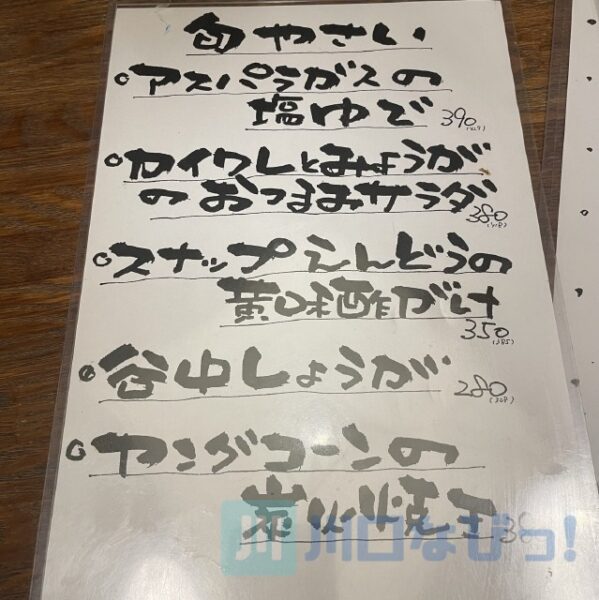 旬やさい
○アスパラガスの
塩ゆで 390
(429)
○カイワレとみょうが
のおつまみサラダ
380
(418)
○スナップえんどうの
黄味酢がけ
350
(385)
○谷中しょうが 280
(308)
○ヤングコーンの
炭火焼
川口なびっ!